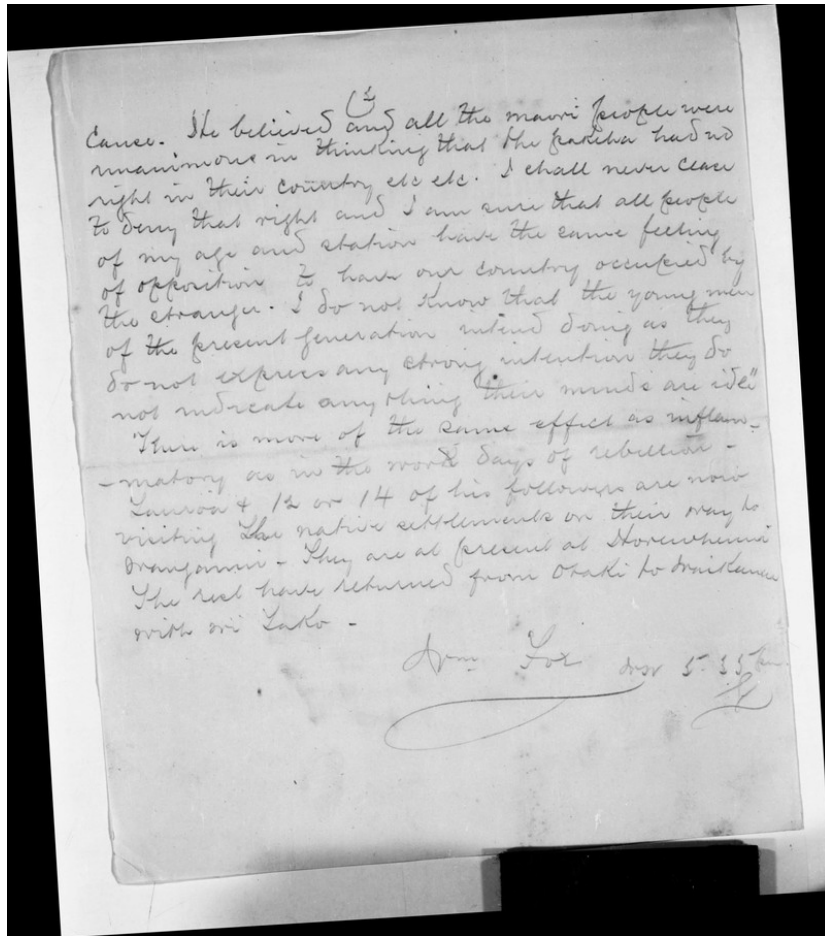 cause. He believed and all the maori people were
unanimous in thinking that the pakeha had no
right in their country etc etc. I shall never cease
to deny that right and I am sure that all people
of my age and station have the same feeling
of opposition to have our country occupied by
the stranger. I do not know that the young men
of the present generation intend doing as they
do not express any strong intention they do
not indicate anything their minds are idle"
There is more of the same effect as inflam-
-matory as in the worst days of rebellion -
Tauroa & 12 or 14 of his followers are now
visiting the native settlements on their way to
Wanganui - They are at present at Horowhenua
The rest have returned from Otaki to Waikanae
with Wi Tako -
Wm Fox
5.35 pm